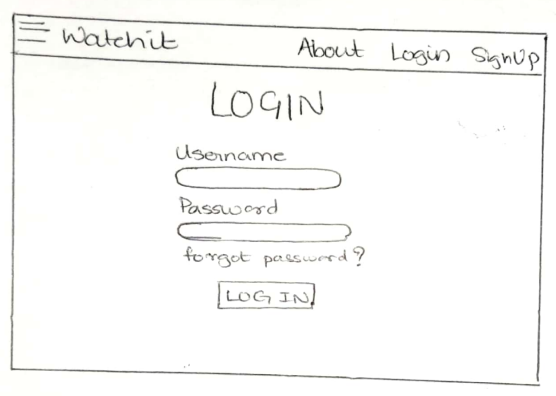 Watchit About Login SignUp
LOGIN
Username
Password
forgot password?
LOG IN